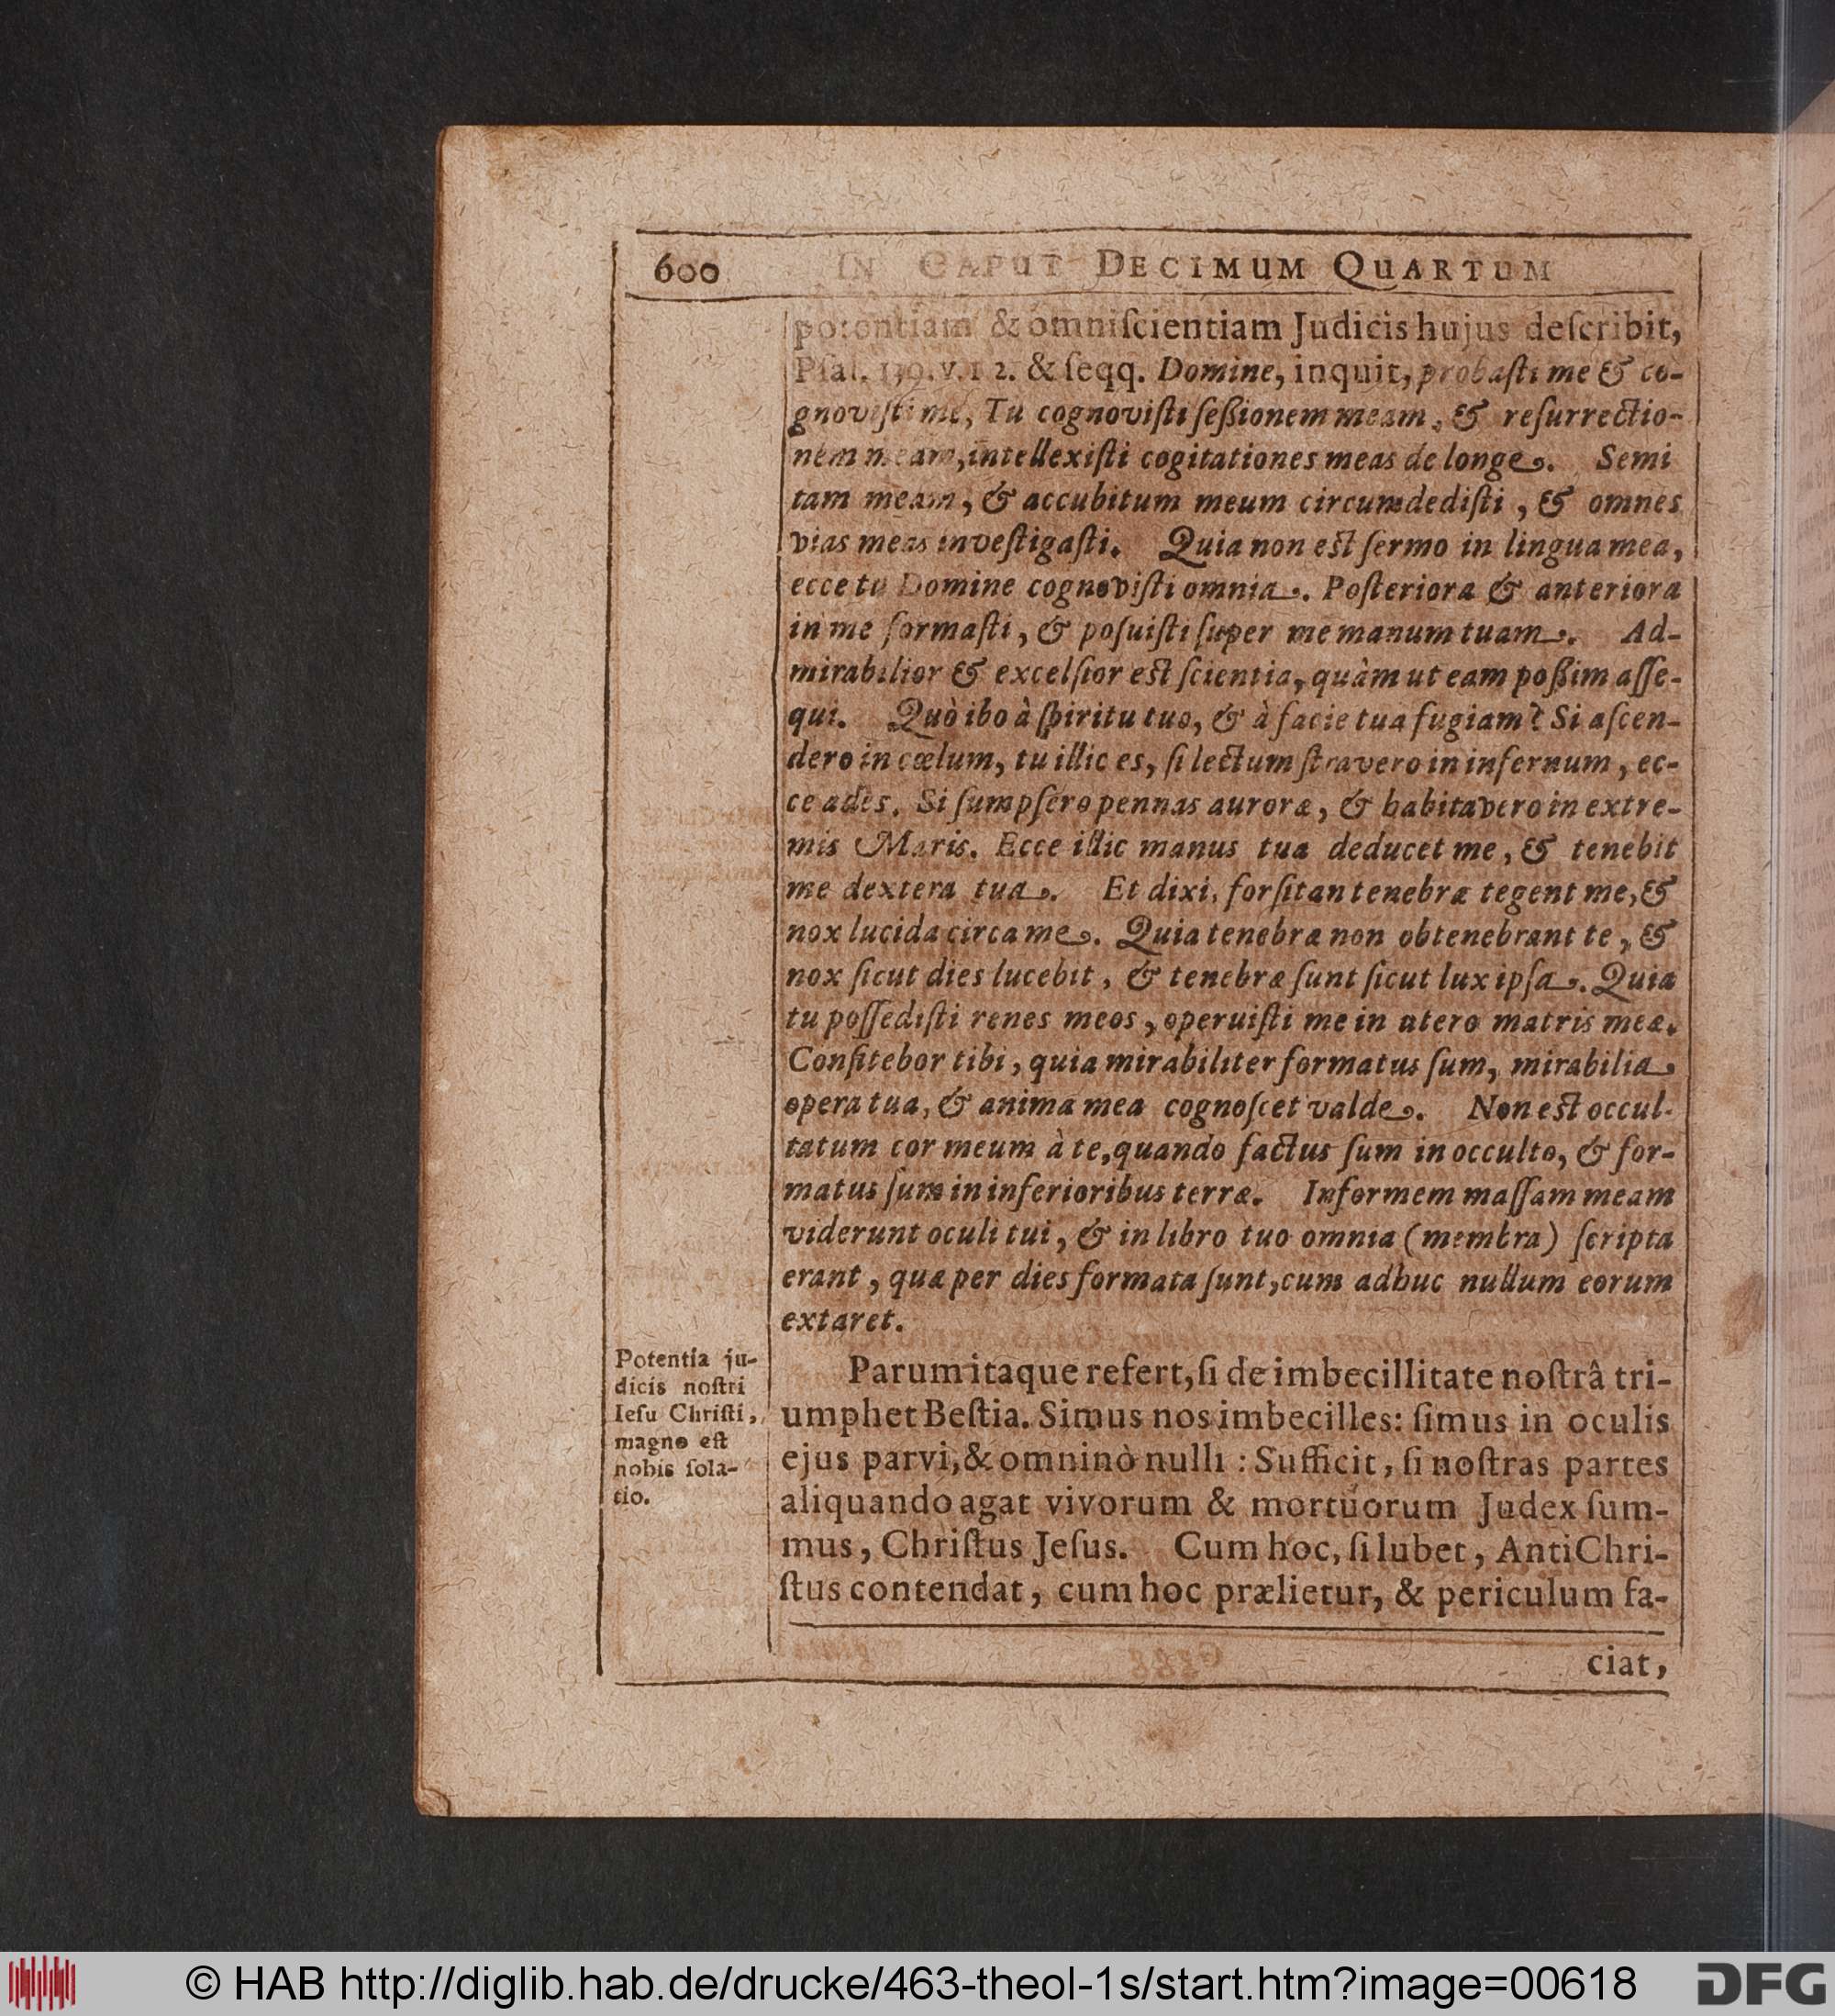 600 IN CAPUT DECIMUM QUARTUM
potentiam & omniſcientiam Judicis hujus deſcribit,
Pſal. 139. v. 1 2. & ſeqq. Domine, inquit, probaſti me & co-
gnoviſti me, Tu cognoviſti ſeßionem meam, & reſurrectio-
nem meam, intellexiſti cogitationes meas de longe. Semi
tam meam, & accubitum meum circumdediſti, & omnes
vias meas inveſtigaſti. Quia non eſt ſermo in lingua mea,
ecce tu Domine cognoviſti omnia. Poſteriora & anteriora
in me formaſti, & poſuiſti ſuper me manum tuam. Ad-
mirabilior & excelſior eſt ſcientia, quàm ut eam poßim aſſe-
qui. Quò ibo à ſpiritu tuo, & à facie tua fugiam? Si aſcen-
dero in cœlum, tu illic es, ſi lectum ſtravero in infernum, ec-
ce ades. Si ſumpſero pennas auroræ, & habitavero in extre-
mis Maris. Ecce illic manus tua deducet me, & tenebit
me dextera tua. Et dixi, forſitan tenebræ tegent me, &
nox lucida circa me. Quia tenebræ non obtenebrant te, &
nox ſicut dies lucebit, & tenebræ ſunt ſicut lux ipſa. Quia
tu poſſediſti renes meos, operuiſti me in utero matris meæ.
Confitebor tibi, quia mirabiliter formatus ſum, mirabilia
opera tua, & anima mea cognoſcet valde. Non eſt occul-
tatum cor meum à te, quando factus ſum in occulto, & for-
matus ſum in inferioribus terræ. Informem maſſam meam
viderunt oculi tui, & in libro tuo omnia (membra) ſcripta
erant, quæ per dies formata ſunt, cum adhuc nullum eorum
extaret.
Potentia ju-
dicis noſtri
Ieſu Chriſti,
magno eſt
nobis ſola-
tio.
Parum itaque refert, ſi de imbecillitate noſtrâ tri-
umphet Beſtia. Simus nos imbecilles: ſimus in oculis
ejus parvi, & omninò nulli : Sufficit, ſi noſtras partes
aliquando agat vivorum & mortuorum Judex ſum-
mus, Chriſtus Jeſus. Cum hoc, ſi lubet, AntiChri-
ſtus contendat, cum hoc prælietur, & periculum fa-
ciat,
© HAB http://diglib.hab.de/drucke/463-theol-1s/start.htm?image=00618
DFG